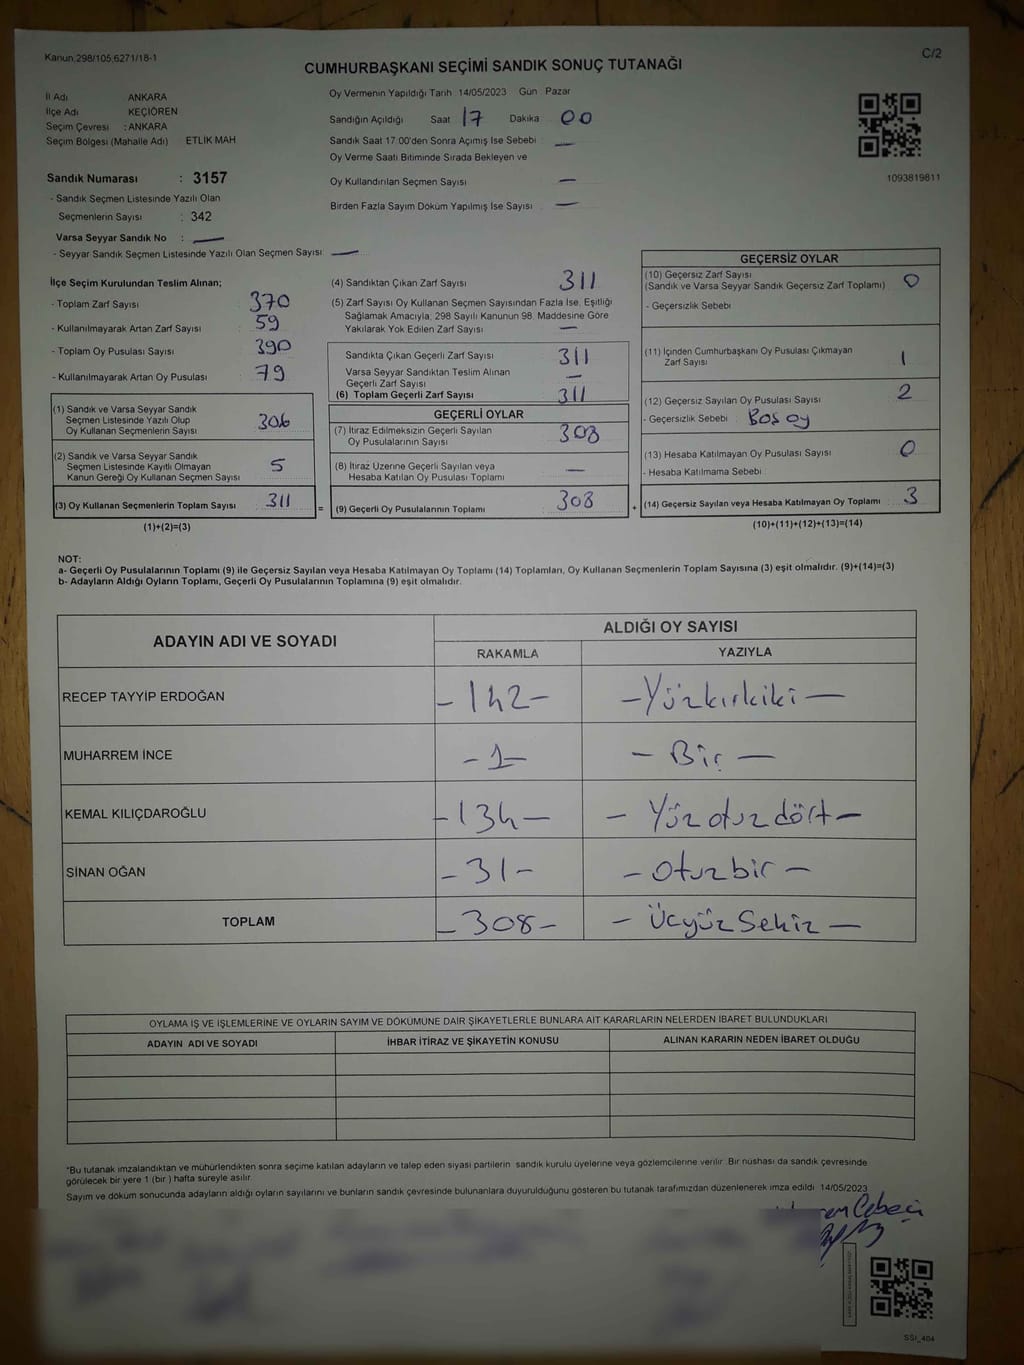 Kanun:298/105,6271/18-1
C/2
CUMHURBAŞKANI SEÇİMİ SANDIK SONUÇ TUTANAĞI
İl Adı ANKARA
İlçe Adı KEÇİÖREN
Seçim Çevresi : ANKARA
Seçim Bölgesi (Mahalle Adı) ETLIK MAH
Sandık Numarası : 3157
- Sandık Seçmen Listesinde Yazılı Olan
Seçmenlerin Sayısı : 342
Varsa Seyyar Sandık No : —
- Seyyar Sandık Seçmen Listesinde Yazılı Olan Seçmen Sayısı —
Oy Vermenin Yapıldığı Tarih 14/05/2023 Gün Pazar
Sandığın Açıldığı Saat 17 Dakika 00
Sandık Saat 17:00'den Sonra Açımış İse Sebebi —
Oy Verme Saati Bitiminde Sırada Bekleyen ve
Oy Kullandırılan Seçmen Sayısı —
Birden Fazla Sayım Döküm Yapılmış İse Sayısı —
1093819811
İlçe Seçim Kurulundan Teslim Alınan;
- Toplam Zarf Sayısı 370
- Kullanılmayarak Artan Zarf Sayısı 59
- Toplam Oy Pusulası Sayısı 390
- Kullanılmayarak Artan Oy Pusulası 79
(1) Sandık ve Varsa Seyyar Sandık
Seçmen Listesinde Yazılı Olup
Oy Kullanan Seçmenlerin Sayısı 306
(2) Sandık ve Varsa Seyyar Sandık
Seçmen Listesinde Kayıtlı Olmayan
Kanun Gereği Oy Kullanan Seçmen Sayısı 5
(3) Oy Kullanan Seçmenlerin Toplam Sayısı 311 =
(1)+(2)=(3)
(4) Sandıktan Çıkan Zarf Sayısı 311
(5) Zarf Sayısı Oy Kullanan Seçmen Sayısından Fazla İse, Eşitliği
Sağlamak Amacıyla; 298 Sayılı Kanunun 98. Maddesine Göre
Yakılarak Yok Edilen Zarf Sayısı —
Sandıkta Çıkan Geçerli Zarf Sayısı 311
Varsa Seyyar Sandıktan Teslim Alınan
Geçerli Zarf Sayısı —
(6) Toplam Geçerli Zarf Sayısı 311
GEÇERLİ OYLAR
(7) İtiraz Edilmeksizin Geçerli Sayılan
Oy Pusulalarının Sayısı 308
(8) İtiraz Üzerine Geçerli Sayılan veya
Hesaba Katılan Oy Pusulası Toplamı —
(9) Geçerli Oy Pusulalarının Toplamı 308 +
GEÇERSİZ OYLAR
(10) Geçersiz Zarf Sayısı
(Sandık ve Varsa Seyyar Sandık Geçersiz Zarf Toplamı) 0
- Geçersizlik Sebebi
(11) İçinden Cumhurbaşkanı Oy Pusulası Çıkmayan
Zarf Sayısı 1
(12) Geçersiz Sayılan Oy Pusulası Sayısı 2
- Geçersizlik Sebebi Boş oy
(13) Hesaba Katılmayan Oy Pusulası Sayısı 0
- Hesaba Katılmama Sebebi
(14) Geçersiz Sayılan veya Hesaba Katılmayan Oy Toplamı 3
(10)+(11)+(12)+(13)=(14)
NOT:
a- Geçerli Oy Pusulalarının Toplamı (9) ile Geçersiz Sayılan veya Hesaba Katılmayan Oy Toplamı (14) Toplamları, Oy Kullanan Seçmenlerin Toplam Sayısına (3) eşit olmalıdır. (9)+(14)=(3)
b- Adayların Aldığı Oyların Toplamı, Geçerli Oy Pusulalarının Toplamına (9) eşit olmalıdır.
ADAYIN ADI VE SOYADI ALDIĞI OY SAYISI
RAKAMLA YAZIYLA
RECEP TAYYİP ERDOĞAN -142- -Yüzkırkiki-
MUHARREM İNCE -1- -Bir-
KEMAL KILIÇDAROĞLU -134- -Yüzotuzdört-
SİNAN OĞAN -31- -Otuzbir-
TOPLAM -308- -ÜçyüzSekiz-
OYLAMA İŞ VE İŞLEMLERİNE VE OYLARIN SAYIM VE DÖKÜMÜNE DAİR ŞİKAYETLERLE BUNLARA AİT KARARLARIN NELERDEN İBARET BULUNDUKLARI
ADAYIN ADI VE SOYADI İHBAR İTİRAZ VE ŞİKAYETİN KONUSU ALINAN KARARIN NEDEN İBARET OLDUĞU
*Bu tutanak imzalandıktan ve mühürlendikten sonra seçime katılan adayların ve talep eden siyasi partilerin sandık kurulu üyelerine veya gözlemcilerine verilir. Bir nüshası da sandık çevresinde
görülecek bir yere 1 (bir ) hafta süreyle asılır.
Sayım ve döküm sonucunda adayların aldığı oyların sayılarını ve bunların sandık çevresinde bulunanlara duyurulduğunu gösteren bu tutanak tarafımızdan düzenlenerek imza edildi. 14/05/2023
Cebeci
SSI_404